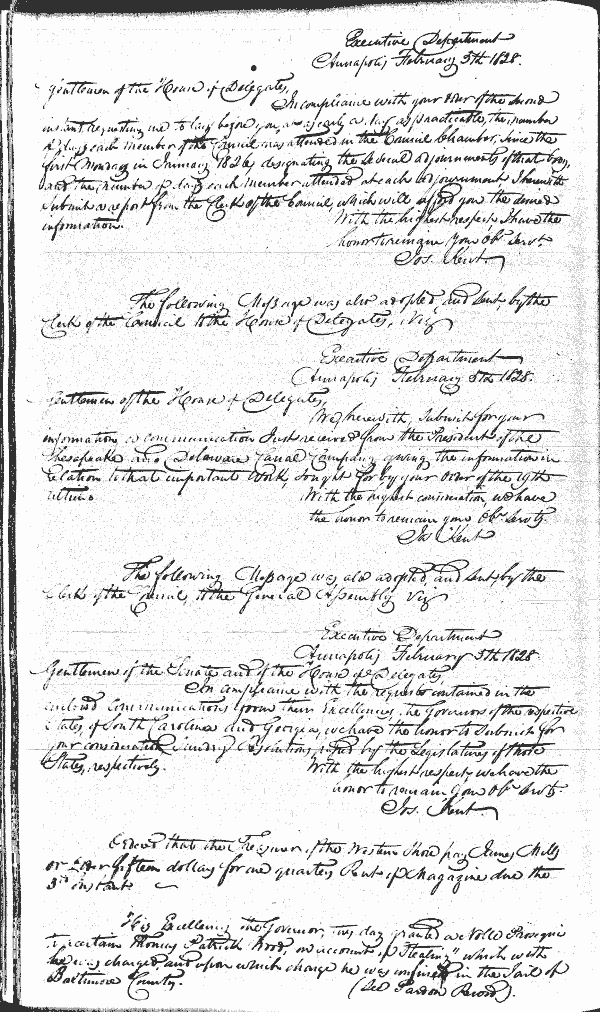 Executive Department
Annapolis February 5th 1828.
Gentlemen of the House of Delegates,
In compliance with your order of the second
instant, requesting me to lay before you, as early a day as practicable, the number
of days each member of the Council has attended in the Council Chamber, since the
first Monday in January 1826, designating the several adjournments of that body,
and the number of days each member attended at each adjournment I herewith
submit a report from the Clerk of the Council, which will afford you the desired
information.
With the highest respect I have the
honor to remain your Obt. Servt.
Jos. Kent.
The following Message was also adopted, and sent by the
Clerk of the Council to the House of Delegates, Viz
Executive Department
Annapolis February 5th 1828.
Gentlemen of the House of Delegates,
We herewith submit for your
information, a communication Just received from the President of the
Chesapeake and Delaware Canal Company giving the information in
relation to that important Work, sought for by your order of the 19th
ultimo.
With the highest consideration, we have
the honor to remain your Obt. Servts.
Jos Kent
The following Message was also adopted, and sent by the
Clerk of the Council, to the General Assembly Viz
Executive Department
Annapolis February 5th 1828.
Gentlemen of the Senate and of the House of Delegates,
In compliance with the requests contained in the
enclosed Communications from their Excellencies, the Governors of the respective
States of South Carolina and Georgia, we have the honor to submit for
your consideration Sundry Resolutions, passed by the Legislatures of those
States, respectively.
With the highest respect, we have the
honor to remain Your Obt. Servts
Jos. Kent.
Ordered that the Treasurer of the Western Shore pay James Mills
or order fifteen dollars for one quarters Rent of Magazine due the
3rd instant
His Excellency the Governor, this day granted a Nolle Prosequi
to a certain Thomas Patrick Wood, on account of "Stealing" which with
he was charged, and upon which charge he was confined in the Jail of
Baltimore County.
(See Pardon Record).